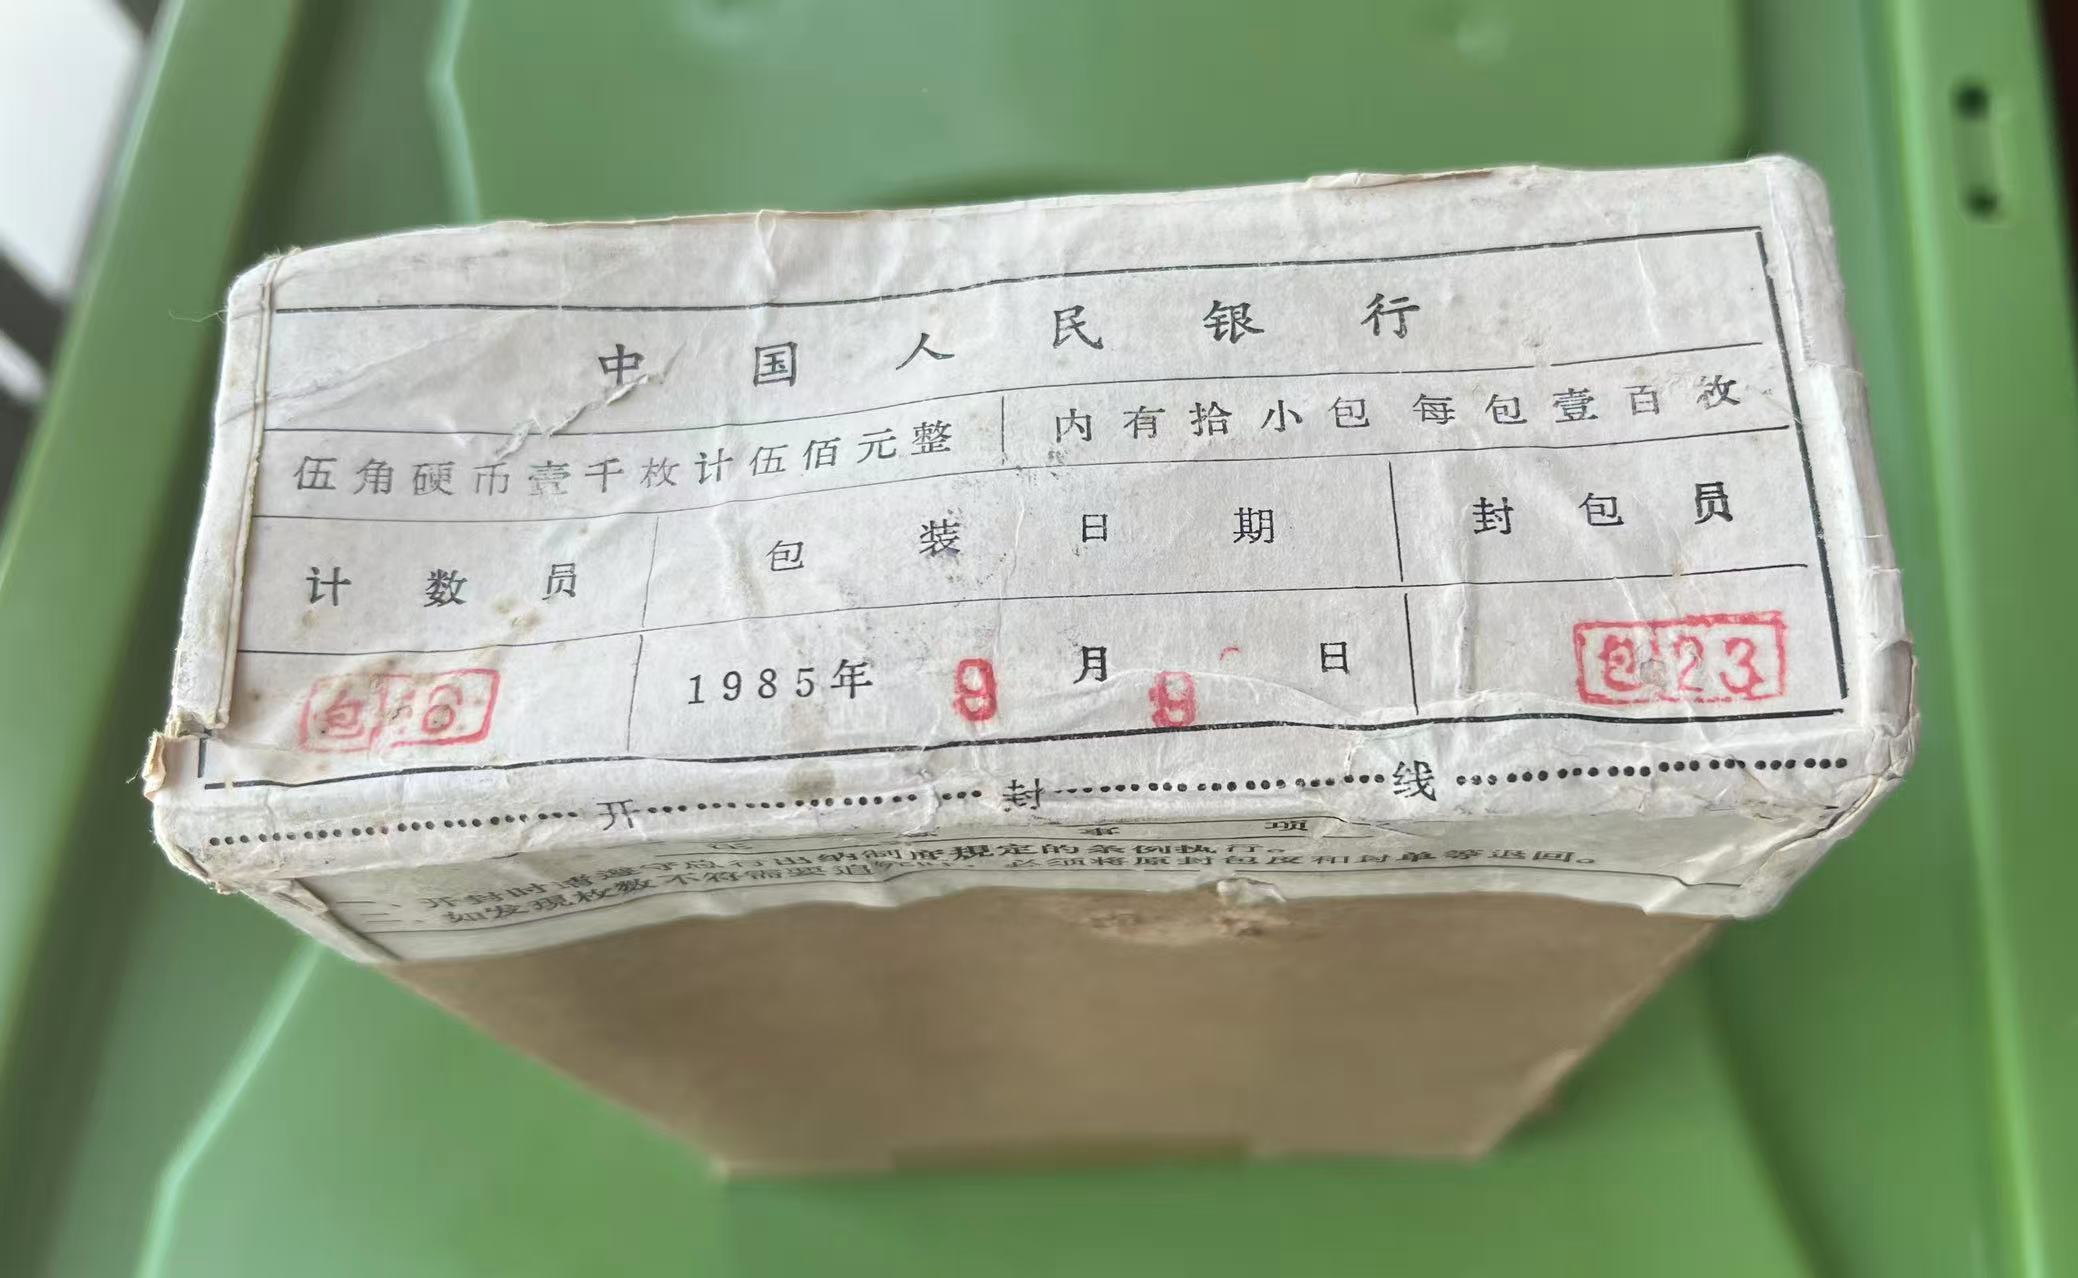 中国人民银行
伍角硬币壹千枚计伍佰元整 内有拾小包每包壹百枚
计数员 包装日期 封包员
包 1985年9月9日 包23
开封线
事项
一、开封时请遵守总行出纳制度规定的条例执行。
二、如发现枚数不符需要追究时，必须将原封包皮和封单等退回。